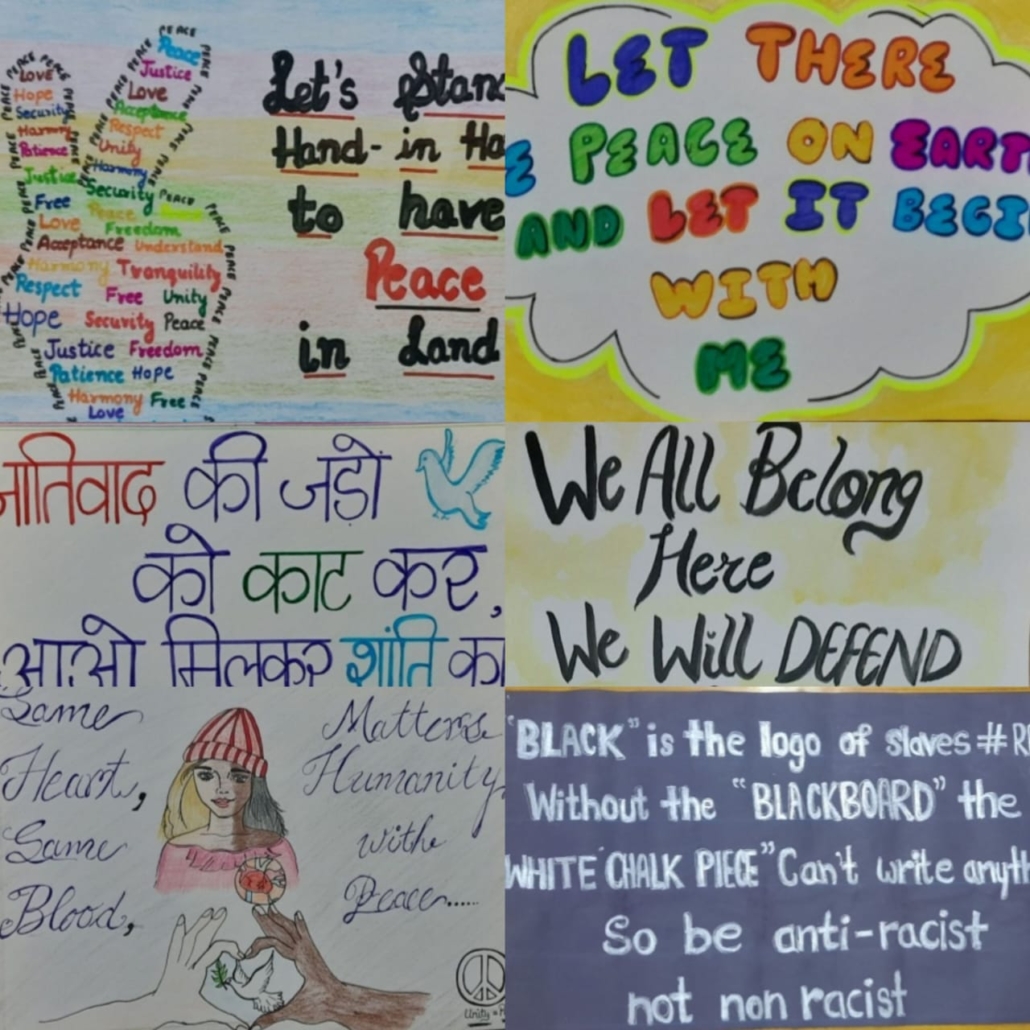 PEACE
Peace
Justice
Love
Acceptance
Respect
Unity
Harmony
Security
Love
Hope
Security
Harmony
Patience
Justice
Free
Peace
Love
Freedom
Acceptance Understand
Harmony Tranquility
Respect Free Unity
Hope Security Peace
Justice Freedom
Patience Hope
Harmony Free
Love
Let's Stand
Hand-in Ha
to have
Peace
in Land
LET THERE
E PEACE ON EARTH
AND LET IT BEGI
WITH
ME
जातिवाद की जड़ो
को काट कर,
आओ मिलकर शांति का
We All Belong
Here
We Will DEFEND
Same
Heart,
Same
Blood,
Matterss
Humanity
withe
Peace......
Unity =
"BLACK" is the logo of slaves #R
Without the "BLACKBOARD" the
WHITE CHALK PIECE" Can't write anyth
So be anti-racist
not non racist